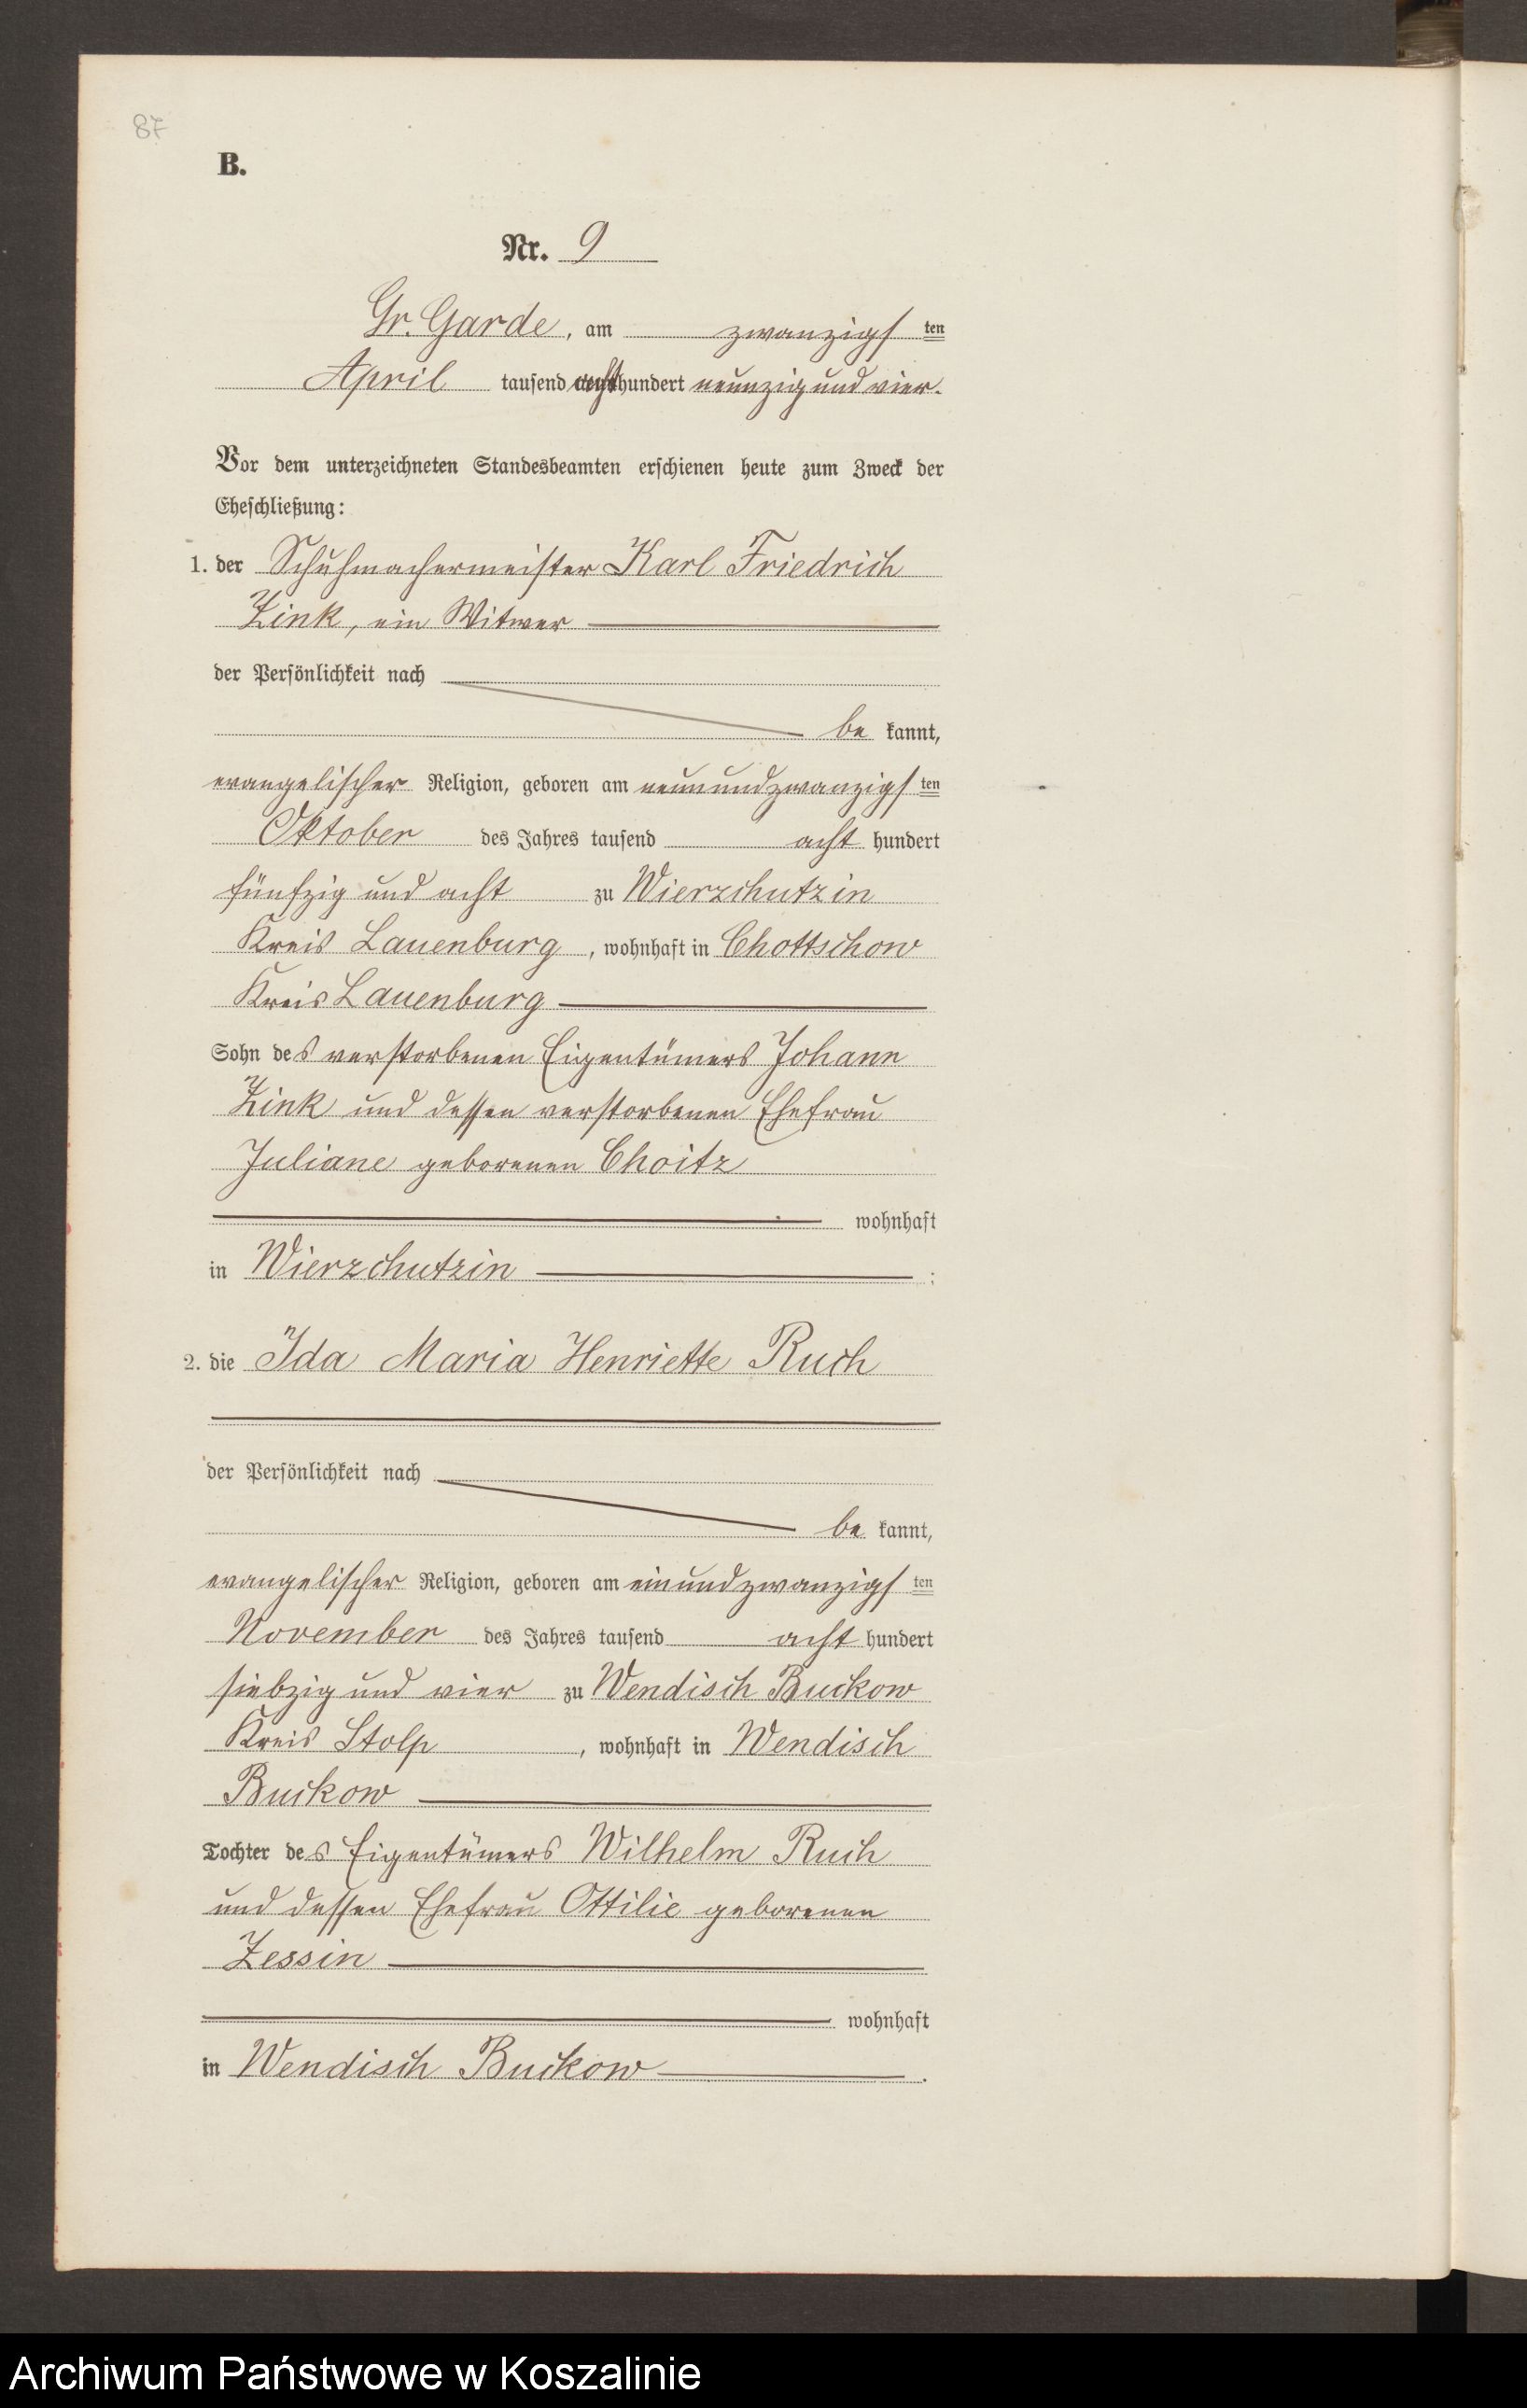 87
B.
Nr. 9
Gr. Garde, am zwanzigsten
April tausend achthundert neunzig und vier.
Vor dem unterzeichneten Standesbeamten erschienen heute zum Zweck der
Eheschließung:
1. der Schuhmachermeister Karl Friedrich
Zink, ein Witwer
der Persönlichkeit nach
be kannt,
evangelischer Religion, geboren am neunundzwanzigsten
Oktober des Jahres tausend acht hundert
fünfzig und acht zu Wierzchutzin
Kreis Lauenburg, wohnhaft in Chottschow
Kreis Lauenburg
Sohn des verstorbenen Eigentümers Johann
Zink und dessen verstorbenen Ehefrau
Juliane geborenen Choitz
wohnhaft
in Wierzchutzin ;
2. die Ida Maria Henriette Ruch
der Persönlichkeit nach
be kannt,
evangelischer Religion, geboren am einundzwanzigsten
November des Jahres tausend acht hundert
siebzig und vier zu Wendisch Buckow
Kreis Stolp, wohnhaft in Wendisch
Buckow
Tochter des Eigentümers Wilhelm Ruch
und dessen Ehefrau Ottilie geborenen
Zessin
wohnhaft
in Wendisch Buckow .
Archiwum Państwowe w Koszalinie